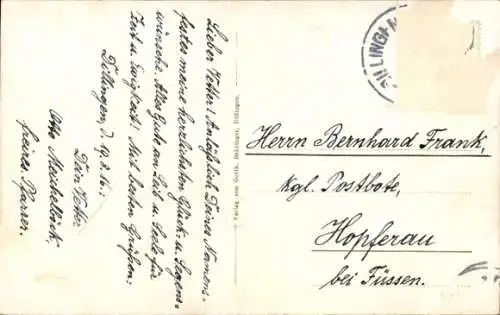 Lieber Vetter! Anläßlich Deines Namens-
festes meine herzlichsten Glück- u. Segens-
wünsche. Alles Gute an Leib u. Seele für
Zeit u. Ewigkeit! Mit besten Grüßen:
Dillingen, d. 19.8.16. Dein Vetter
Otto
freires. Pfarrer.
Verlag von Gottl. Dillingen.
DILLINGEN
Herrn Bernhard Frank,
kgl. Postbote,
Hopferau
bei Füssen.